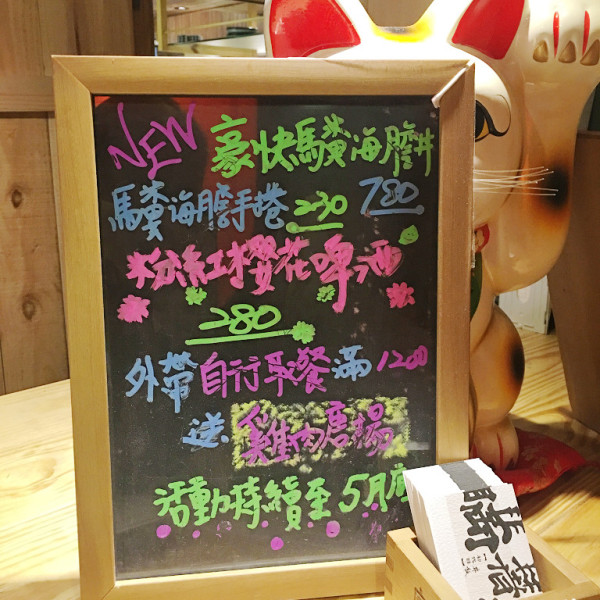 NEW 豪快馬糞海膽丼
780
馬糞海膽手捲 230
粉紅櫻花啤酒
280
外帶自行取餐滿1200
送雞肉唐揚
活動持續至5月底